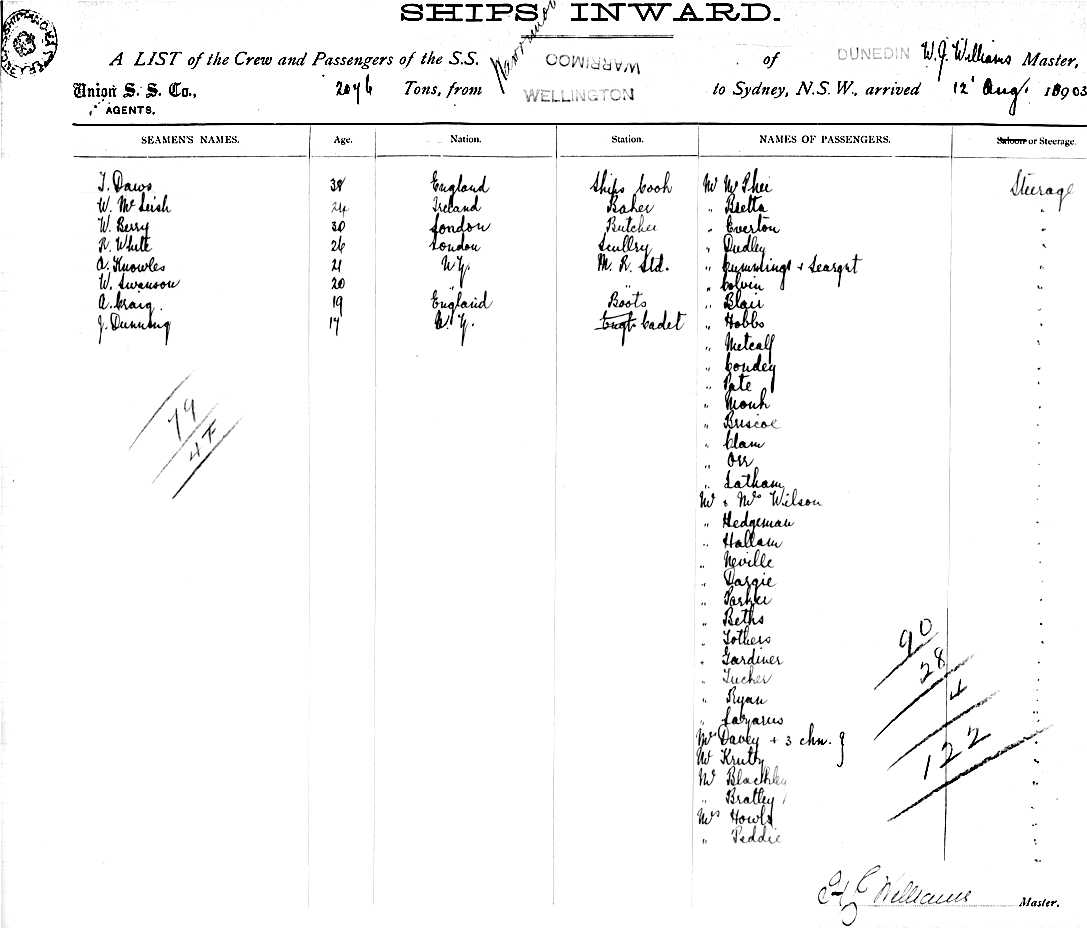 SHIPS INWARD.
Warrimoo
A LIST of the Crew and Passengers of the S.S. WARRIMOO of DUNEDIN W. G. Williams Master,
Union S. S. Co., 2076 Tons, from WELLINGTON to Sydney, N.S.W., arrived 12' Aug. 18903
AGENTS.
SEAMEN'S NAMES. Age. Nation. Station. NAMES OF PASSENGERS. Saloon or Steerage.
T. Daws 38 England Ships Cook Mr McPhee Steerage
W. McLeish 24 Ireland Baker " Beetta "
W. Berry 30 London Butcher " Everton "
R. White 26 London Scullry " Dudley "
A. Knowles 21 N Z. M. R. Std. " Cummings + Seargrt "
W. Swanson 20 " " " Colvin "
A. Craig. 19 England Boots " Blair "
J. Dunning 17 N. Z. Engr Cadet " Hobbs "
" Metcalf "
" Condey "
" Pate "
" Monk "
" Briscoe "
" Clam "
" Orr "
" Latham "
Mr + Mrs Wilson "
" Hedgeman "
" Hallam "
" Neville "
" Dargie "
" Parker "
" Beths "
" Tothers "
" Gardiner "
" Tucker "
" Ryan "
" Lazarus "
Mrs Davey + 3 chn. "
Mr Krutty "
Mr Blackley "
" Bratley "
Mrs Howls "
" Peddie "
79
47
90
28
4
122
Williams Master.